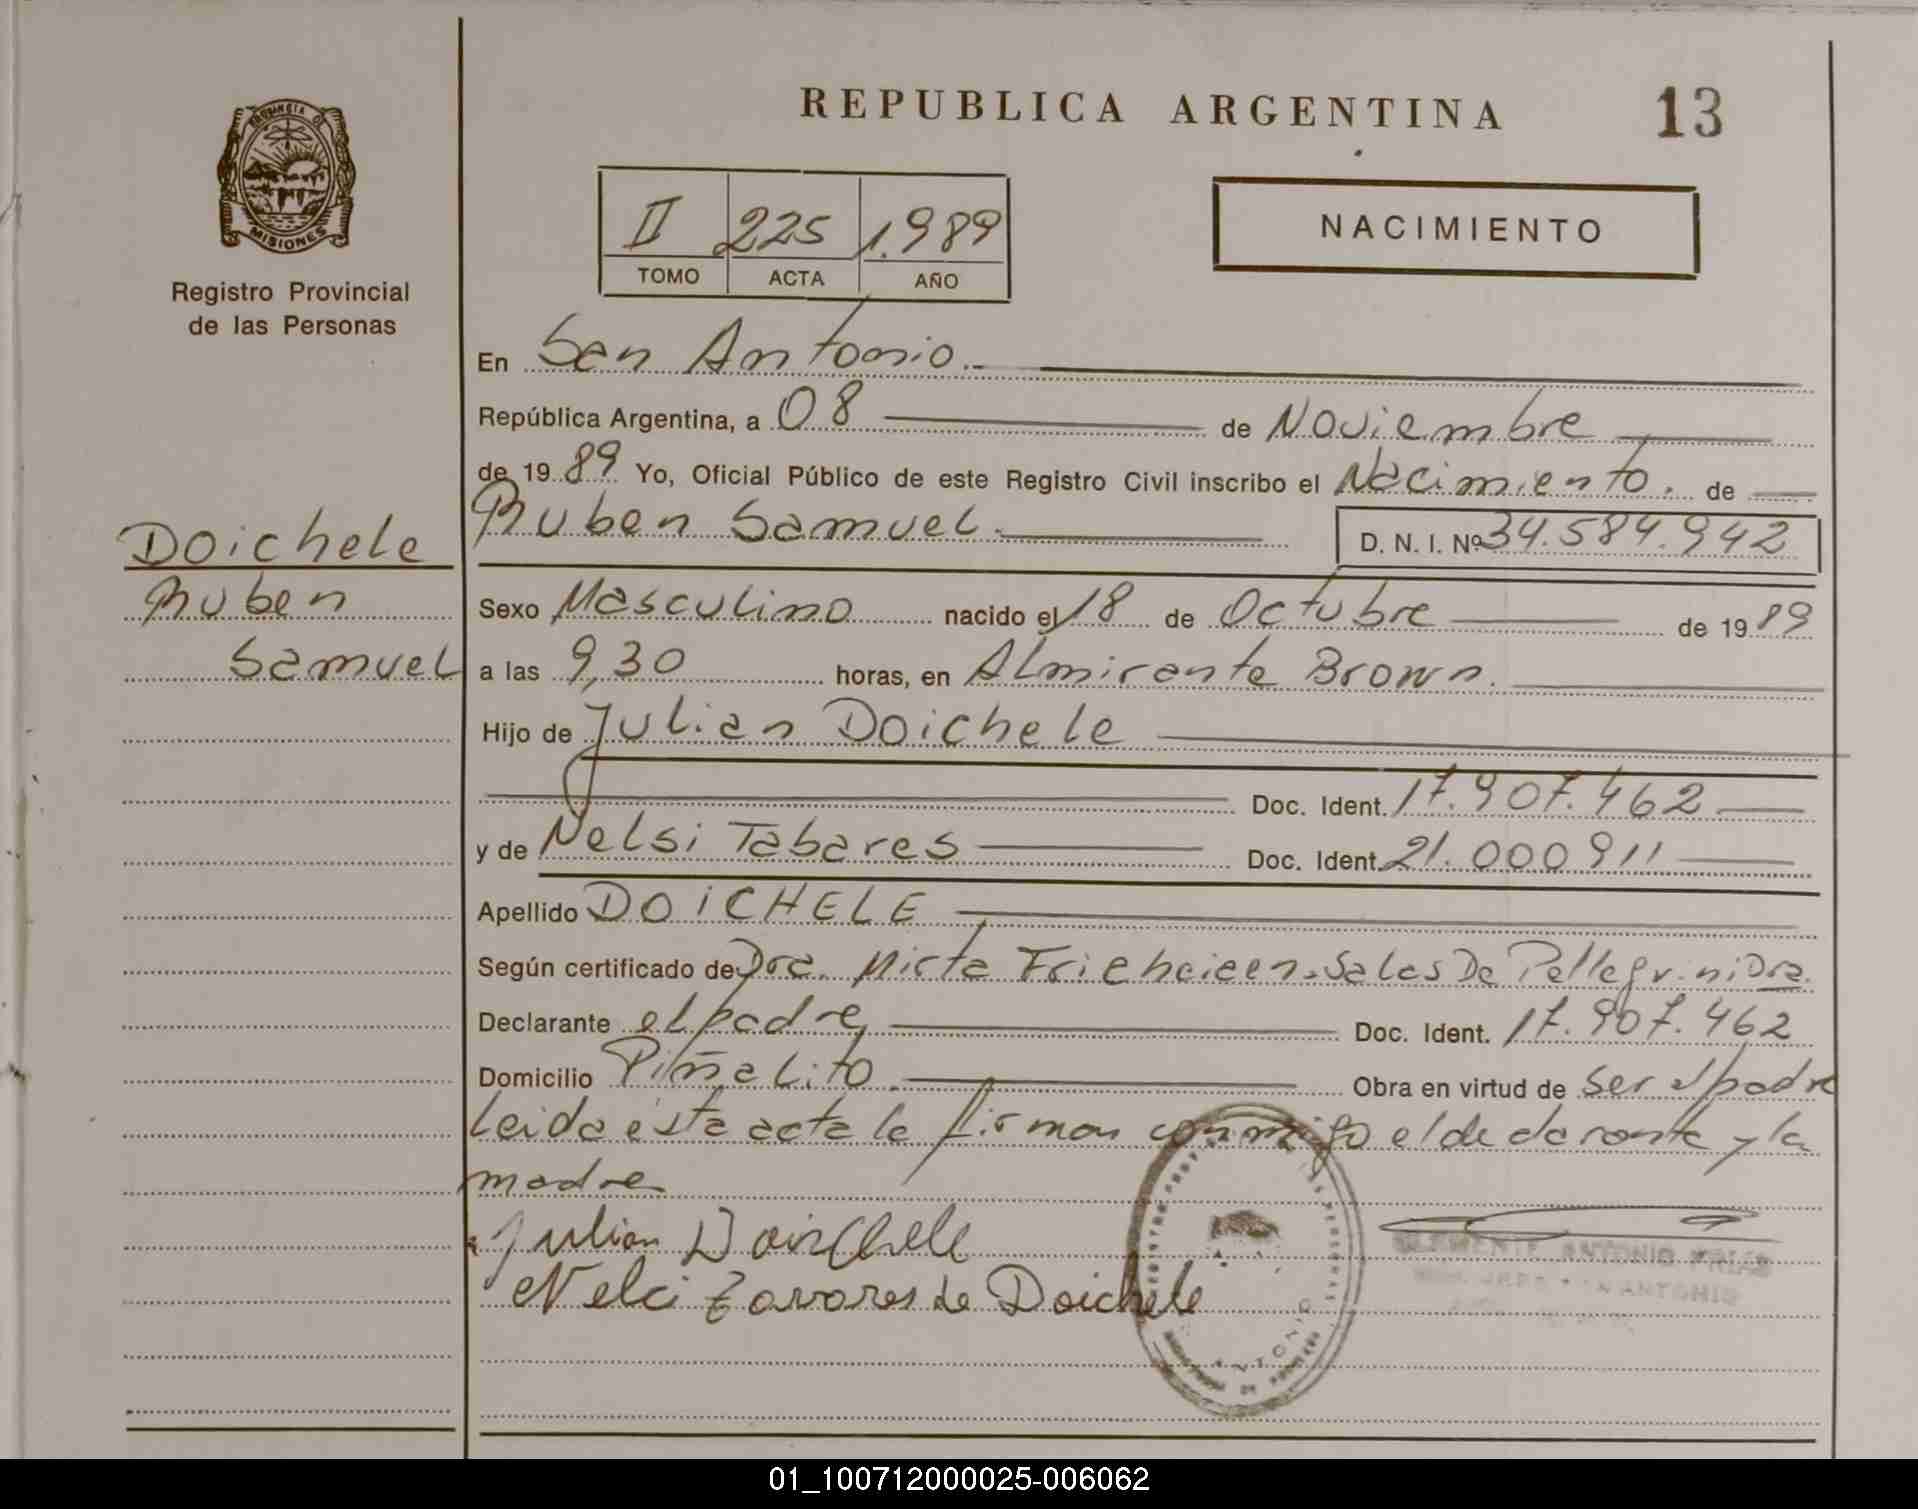 REPUBLICA ARGENTINA 13
PROVINCIA DE
MISIONES
Registro Provincial
de las Personas
II 225 1.989
TOMO ACTA AÑO
NACIMIENTO
En San Antonio.-
República Argentina, a 08 de Noviembre
de 19 89 Yo, Oficial Público de este Registro Civil inscribo el Nacimiento. de
Ruben Samuel. D. N. I. Nº 34.584.942
Doichele
Ruben
Samuel
Sexo Masculino nacido el 18 de Octubre de 19 89
a las 9,30 horas, en Almirante Brown.
Hijo de Julian Doichele
Doc. Ident. 17.907.462
y de Nelsi Tabares Doc. Ident. 21.000911
Apellido DOICHELE
Según certificado de Dra. Mirta Sales De Pellegrini Dra.
Declarante el padre Doc. Ident. 17.907.462
Domicilio Piñalito. Obra en virtud de ser el padre
Leida ésta acta la firman conmigo el declarante y la
madre
Julian Doichele
Nelci Tavares de Doichele
CLEMENTE ANTONIO FRIAS
01_100712000025-006062